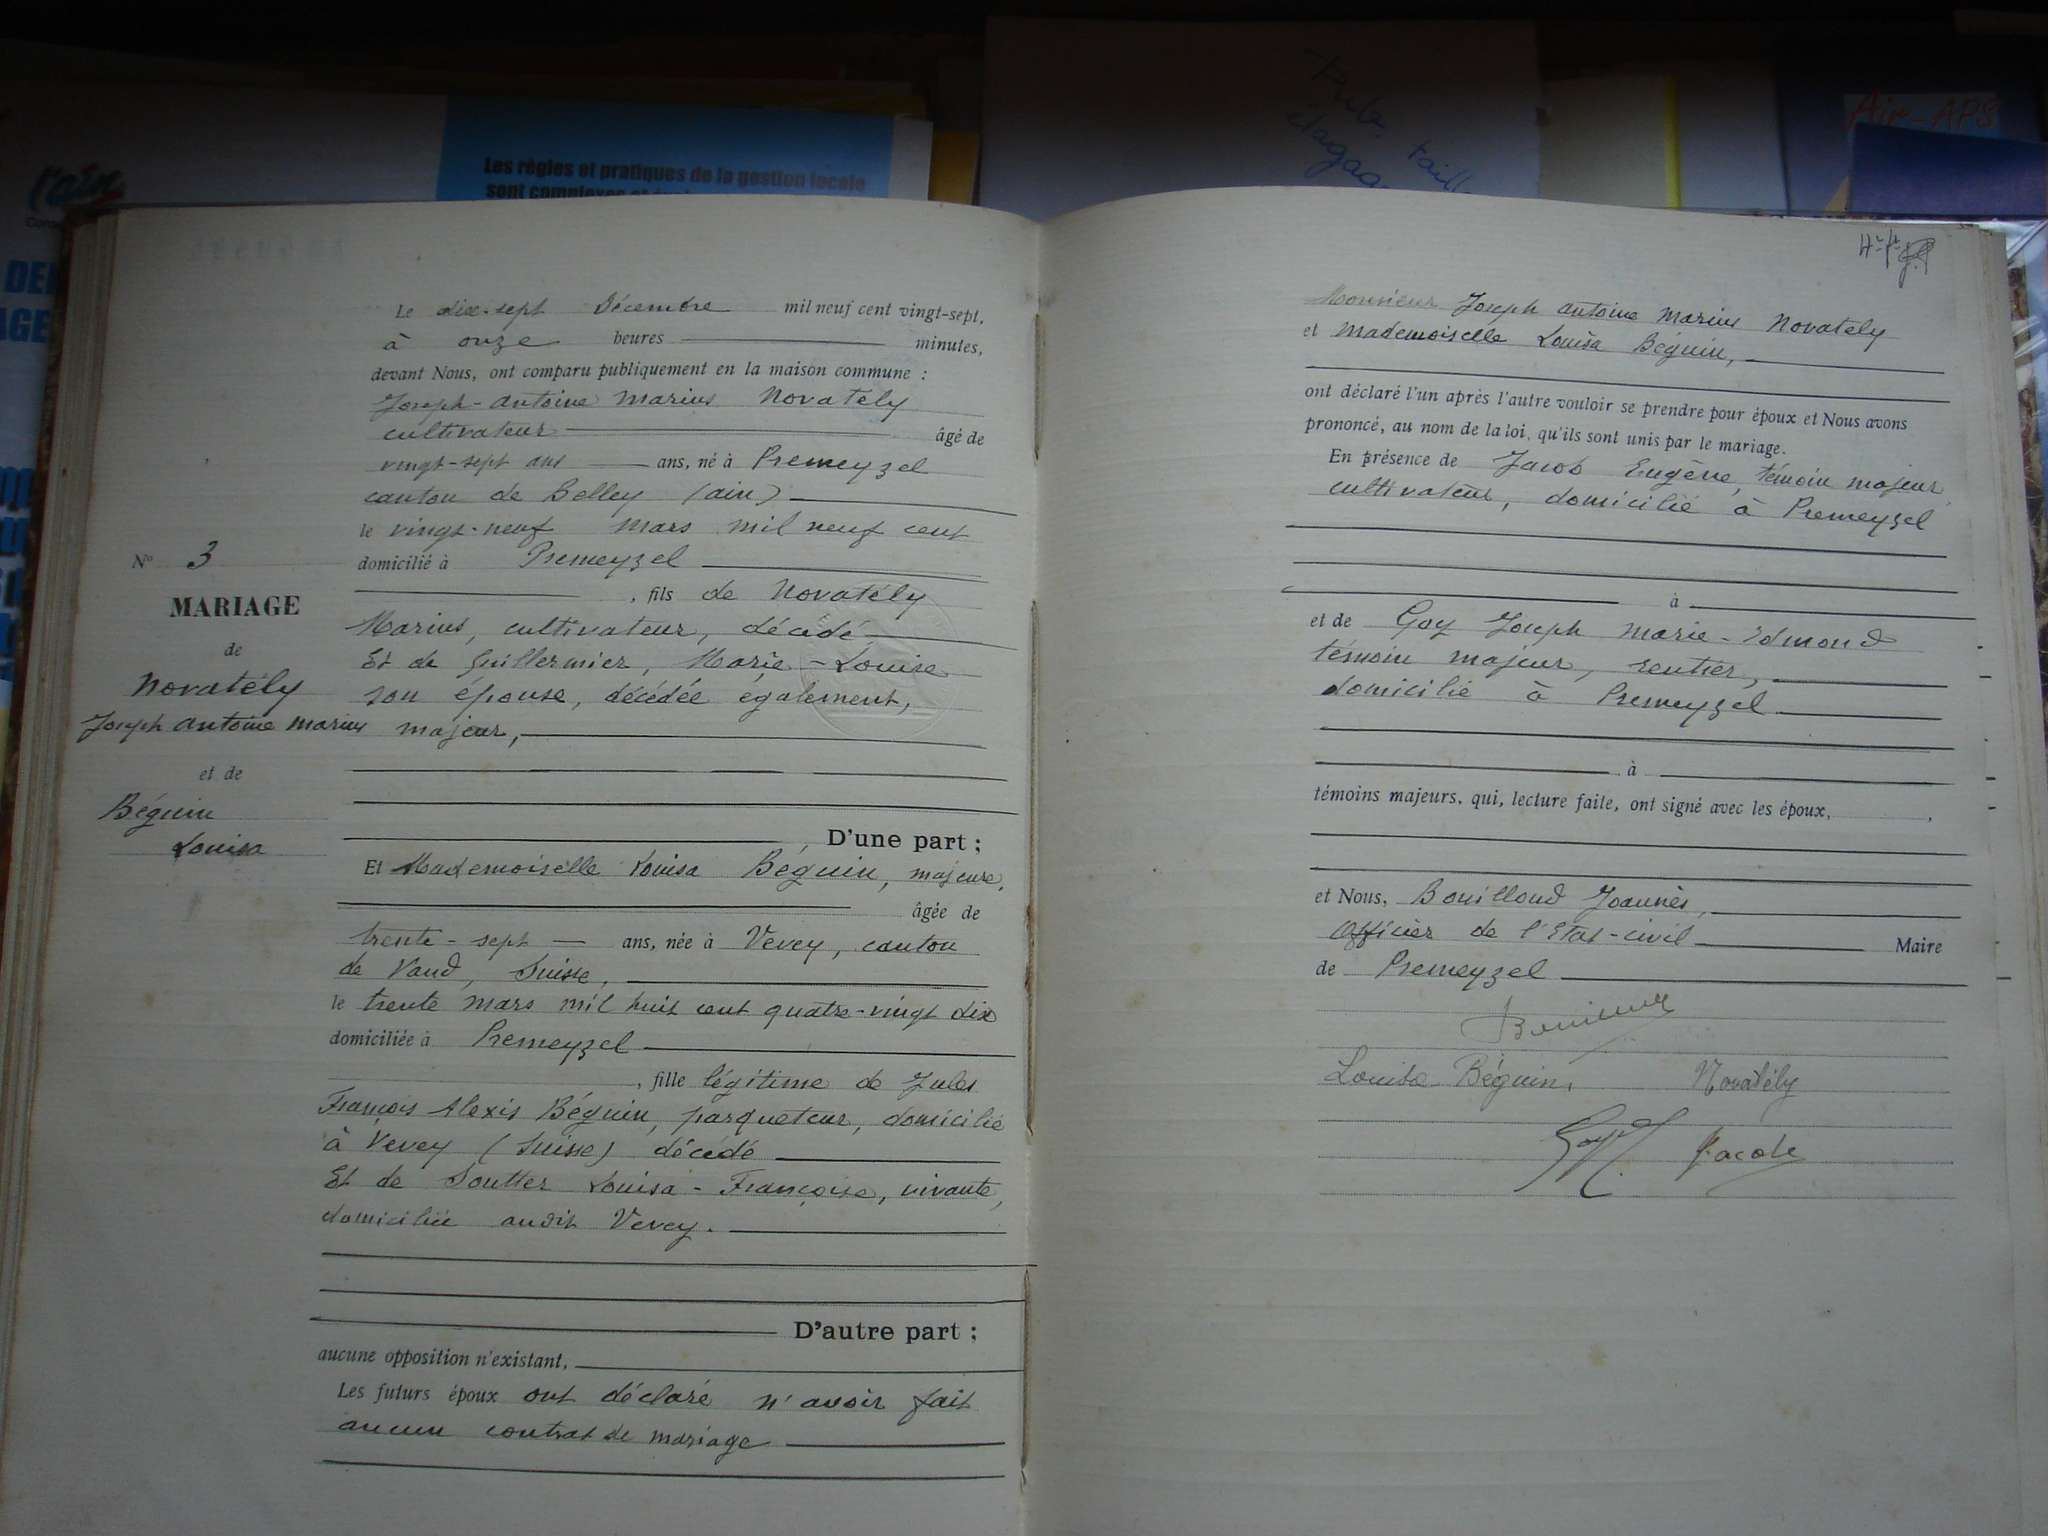 l'ain
Les règles et pratiques de la gestion locale
sont complexes et
Pub. taill
élagag
Air-APS
DE
AGE
Le dix-sept Décembre mil neuf cent vingt-sept,
à onze heures minutes,
devant Nous, ont comparu publiquement en la maison commune :
Joseph-Antoine Marius Novatély
cultivateur âgé de
vingt-sept ans ans, né à Premeyzel
canton de Belley (Ain)
le vingt-neuf Mars mil neuf cent
domicilié à Premeyzel
, fils de Novatély
Marius, cultivateur, décédé
Et de Guillermier, Marie-Louise
son épouse, décédée également,
majeur,
D'une part ;
Et Mademoiselle Louisa Béguin, majeure,
âgée de
trente-sept ans, née à Vevey, canton
de Vaud, Suisse,
le trente mars mil huit cent quatre-vingt dix
domiciliée à Premeyzel
, fille légitime de Jules
François Alexis Béguin, parqueteur, domicilié
à Vevey (Suisse) décédé
Et de Soutter Louisa-Françoise, vivante,
domiciliée audit Vevey.
D'autre part ;
aucune opposition n'existant,
Les futurs époux ont déclaré n'avoir fait
aucun contrat de mariage
N° 3
MARIAGE
de
Novatély
Joseph Antoine Marius
et de
Béguin
Louisa
Monsieur Joseph Antoine Marius Novatély
et Mademoiselle Louisa Béguin,
ont déclaré l'un après l'autre vouloir se prendre pour époux et Nous avons
prononcé, au nom de la loi, qu'ils sont unis par le mariage.
En présence de Jacob Eugène, témoin majeur,
cultivateur, domicilié à Premeyzel
à
et de Goy Joseph Marie-Edmond
témoin majeur, rentier,
domicilié à Premeyzel
à
témoins majeurs, qui, lecture faite, ont signé avec les époux,
et Nous, Bouilloud Joannès,
Officier de l'Etat-civil Maire
de Premeyzel
Louisa Béguin, Novatély
Jacob